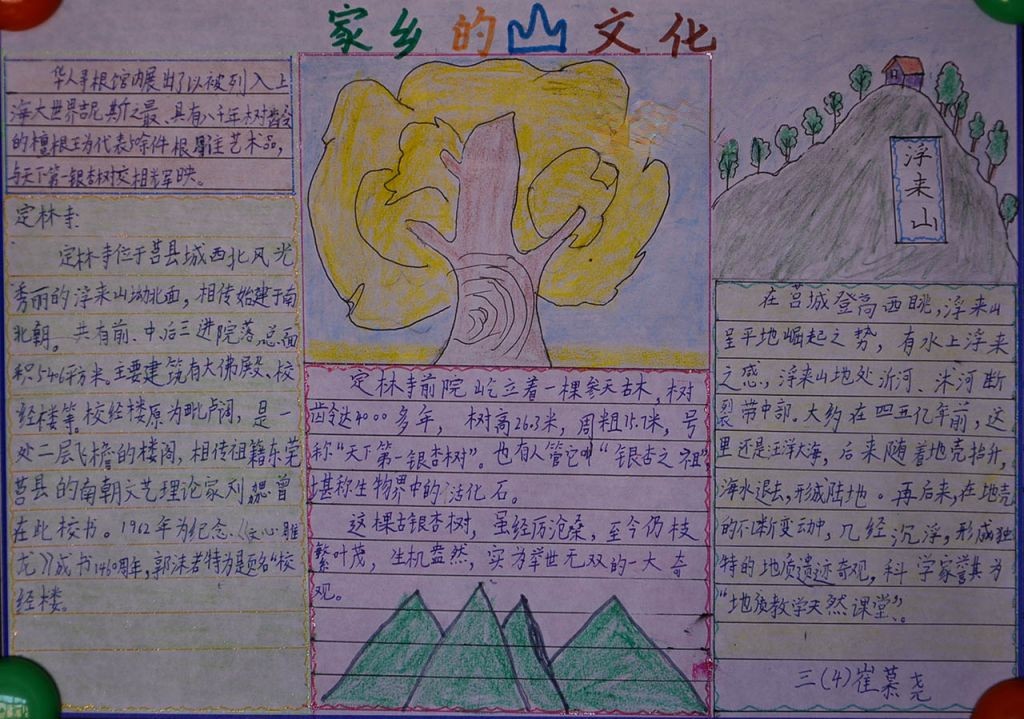 家乡的山文化
华人寻根馆内展出了以被列入上
海大世界吉尼斯之最、具有八千年树龄
的檀根王为代表的 件根雕艺术品,
与天下第一银杏树交相 映。
定林寺:
定林寺位于莒县城西北风光
秀丽的浮来山 北面,相传始建于南
北朝。共有前、中、后三进院落,总面
积5446平方米。主要建筑有大佛殿、校
经楼等。校经楼原为毗卢阁,是一
处二层飞檐的楼阁,相传祖籍东莞
莒县的南朝文艺理论家刘勰曾
在此校书。1962年为纪念《文心雕
龙》成书1460周年,郭沫若特为题名“校
经楼。
定林寺前院屹立着一棵参天古木,树
龄达4000多年,树高26.3米,周粗15.7米,号
称“天下第一银杏树”。也有人管它叫“银杏之祖”
堪称生物界中的活化石。
这棵古银杏树,虽经历沧桑,至今仍枝
繁叶茂,生机盎然,实为举世无双的一大奇
观。
浮来山
在莒城登高西眺,浮来山
呈平地崛起之势,有水上浮来
之感。浮来山地处沂河、沭河断
裂带中部。大约在四五亿年前,这
里还是汪洋大海,后来随着地壳抬升,
海水退去,形成陆地。再后来,在地壳
的不断变动中,几经沉浮,形成独
特的地质遗迹奇观,科学家誉其为
“地质教学天然课堂”。
三(4)崔慕尧